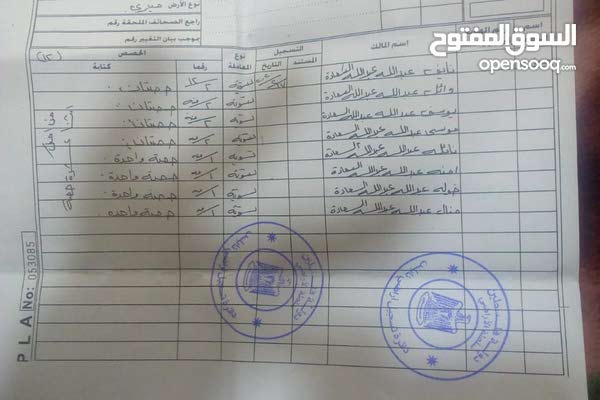 نوع الأرض ميري
راجع الصحائف الملحقة رقم
بموجب بيان التغيير رقم
السوق المفتوح
opensooq.com
اسم المالك
التسجيل
المستند
التاريخ
نوع المعاملة
الحصص
رقما
كتابة
نائف عبدالله عبدالله السعادة تسوية ٢ حصتان
وائل عبدالله عبدالله السعادة تسوية ٢ حصتان
يوسف عبدالله عبدالله السعادة تسوية ٢ حصتان
موسى عبدالله عبدالله السعادة تسوية ٢ حصتان
نائله عبدالله عبدالله السعادة تسوية ١ حصة واحدة
امنه عبدالله عبدالله السعادة تسوية ١ حصة واحدة
خوله عبدالله عبدالله السعادة تسوية ١ حصة واحدة
منال عبدالله عبدالله السعادة تسوية ١ حصة واحدة
دولة فلسطين
دولة فلسطين
P L A No: 053085